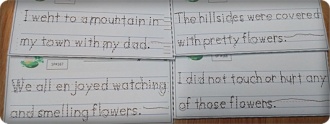 I went to a mountain in
my town with my dad.
The hillsides were covered
with pretty flowers.
We all enjoyed watching
and smelling flowers.
I did not touch or hurt any
of those flowers.